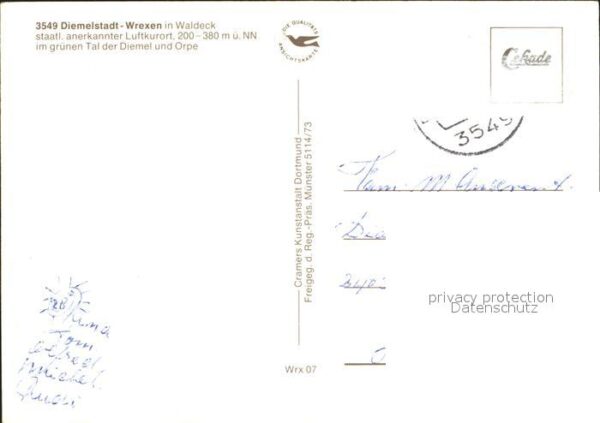 3549 Diemelstadt - Wrexen in Waldeck
staatl. anerkannter Luftkurort, 200 – 380 m ü. NN
im grünen Tal der Diemel und Orpe
DIE QUALITÄTS
ANSICHTSKARTE
Cekade
3549
Cramers Kunstanstalt Dortmund
Freigeg. d. Reg.-Präs. Münster 5114/73
Fam. M
privacy protection
Datenschutz
Tom
Alfred
Michel
Wrx 07